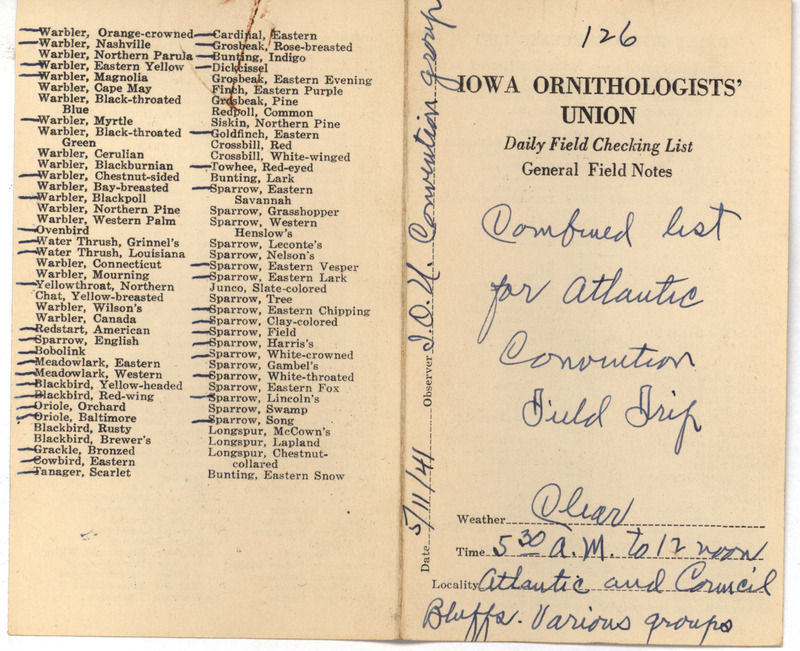 Warbler, Orange-crowned
Warbler, Nashville
Warbler, Northern Parula
Warbler, Eastern Yellow
Warbler, Magnolia
Warbler, Cape May
Warbler, Black-throated
Blue
Warbler, Myrtle
Warbler, Black-throated
Green
Warbler, Cerulian
Warbler, Blackburnian
Warbler, Chestnut-sided
Warbler, Bay-breasted
Warbler, Blackpoll
Warbler, Northern Pine
Warbler, Western Palm
Ovenbird
Water Thrush, Grinnel's
Water Thrush, Louisiana
Warbler, Connecticut
Warbler, Mourning
Yellowthroat, Northern
Chat, Yellow-breasted
Warbler, Wilson's
Warbler, Canada
Redstart, American
Sparrow, English
Bobolink
Meadowlark, Eastern
Meadowlark, Western
Blackbird, Yellow-headed
Blackbird, Red-wing
Oriole, Orchard
Oriole, Baltimore
Blackbird, Rusty
Blackbird, Brewer's
Grackle, Bronzed
Cowbird, Eastern
Tanager, Scarlet
Cardinal, Eastern
Grosbeak, Rose-breasted
Bunting, Indigo
Dickcissel
Grosbeak, Eastern Evening
Finch, Eastern Purple
Grosbeak, Pine
Redpoll, Common
Siskin, Northern Pine
Goldfinch, Eastern
Crossbill, Red
Crossbill, White-winged
Towhee, Red-eyed
Bunting, Lark
Sparrow, Eastern
Savannah
Sparrow, Grasshopper
Sparrow, Western
Henslow's
Sparrow, Leconte's
Sparrow, Nelson's
Sparrow, Eastern Vesper
Sparrow, Eastern Lark
Junco, Slate-colored
Sparrow, Tree
Sparrow, Eastern Chipping
Sparrow, Clay-colored
Sparrow, Field
Sparrow, Harris's
Sparrow, White-crowned
Sparrow, Gambel's
Sparrow, White-throated
Sparrow, Eastern Fox
Sparrow, Lincoln's
Sparrow, Swamp
Sparrow, Song
Longspur, McCown's
Longspur, Lapland
Longspur, Chestnut-
collared
Bunting, Eastern Snow
Date 5/11/41 Observer I.O.U. Convention group
126
IOWA ORNITHOLOGISTS'
UNION
Daily Field Checking List
General Field Notes
Combined list
for Atlantic
Convention
Field Trip
Weather Clear
Time 5 30 A.M. to 12 noon
Locality Atlantic and Council
Bluffs. Various groups